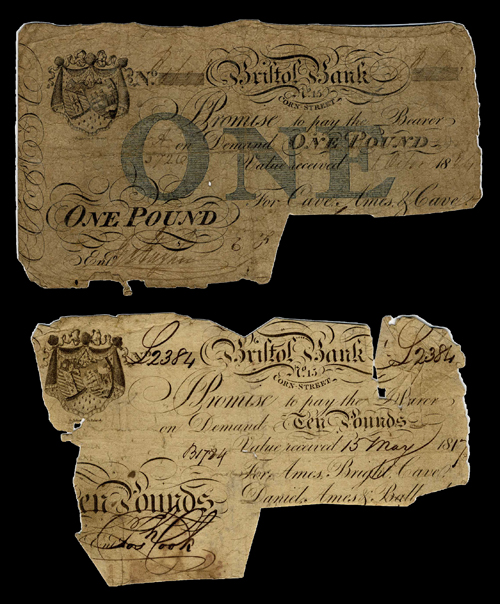 No. Bristol Bank
No. 15
CORN-STREET
I Promise to pay the Bearer
on Demand ONE POUND
ONE
Value received 18
For Cave, Ames, & Cave
ONE POUND
Entd.
£2384 Bristol Bank £2384
No. 15
CORN-STREET
I Promise to pay the Bearer
on Demand Ten Pounds
B1784 Value received 15 May 1817
For Ames, Bright, Cave
Daniel, Ames & Ball
en Pounds
Cook